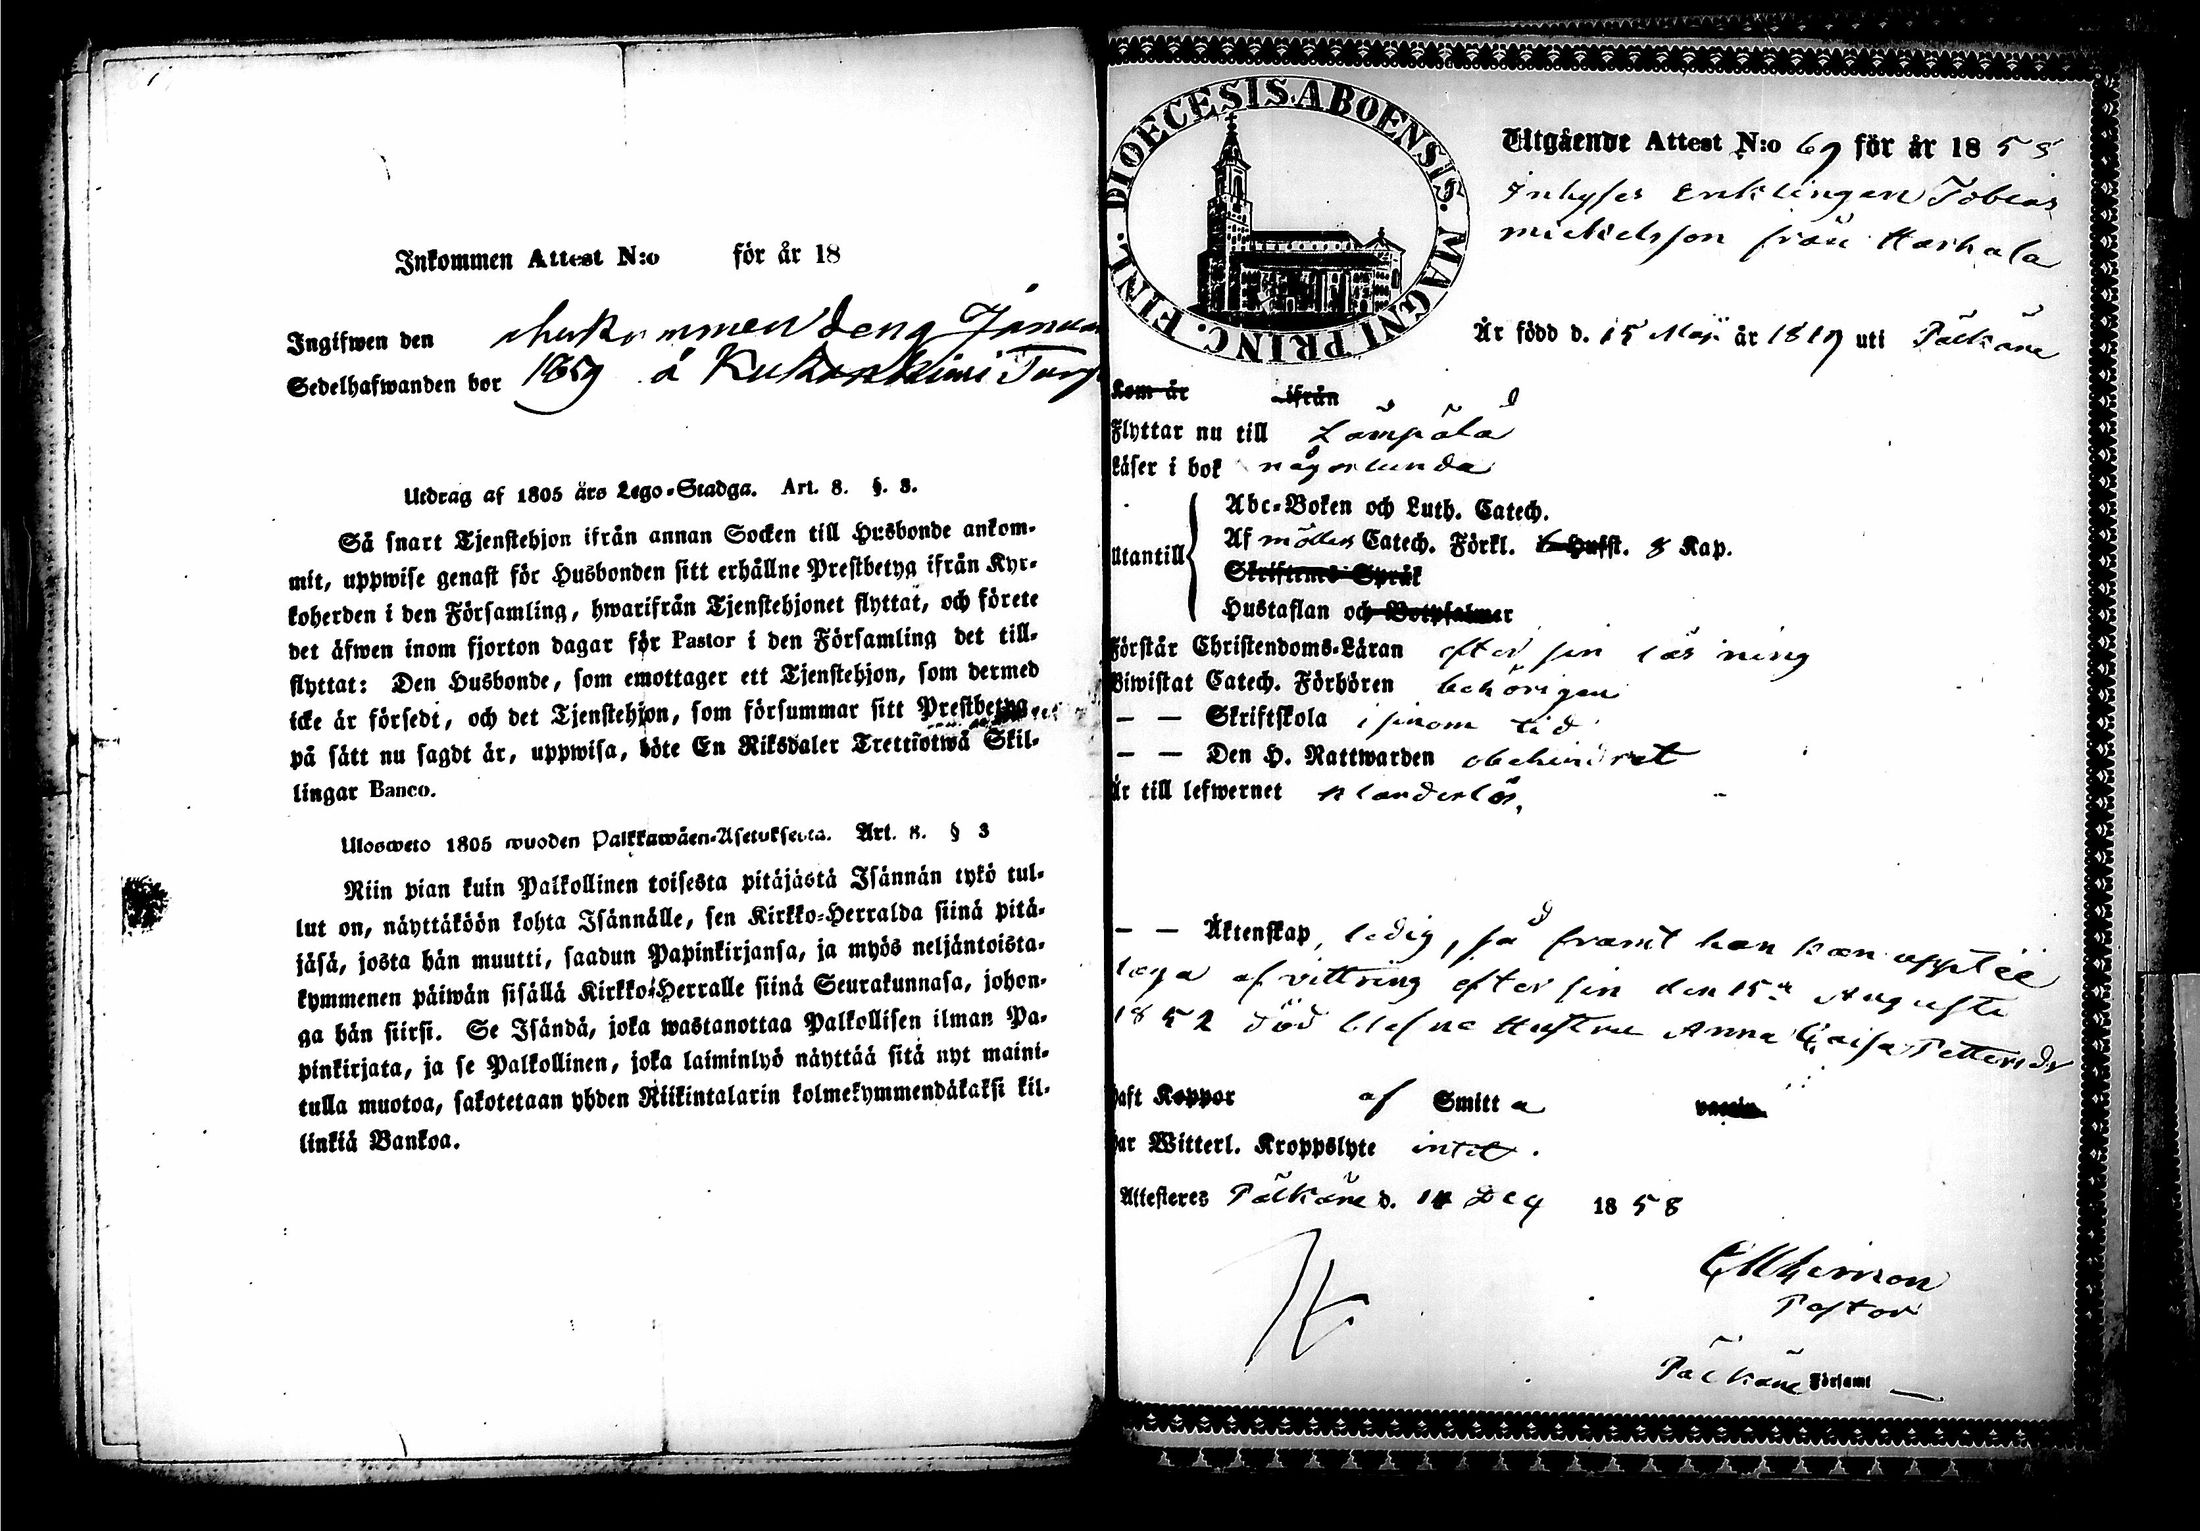 Inkommen Attest N:o för år 18
Ingifwen den ankommen den 9 Janua
Sedelhafwanden bor 1859 å Torp
Utdrag af 1805 års Lego-Stadga. Art. 8. §. 3.
Så snart Tjenstehjon ifrån annan Socken till Husbonde ankom-
mit, uppwise genast för Husbonden sitt erhållne Prestbetyg ifrån Kyr-
koherden i den Församling, hwarifrån Tjenstehjonet flyttat, och förete
det äfwen inom fjorton dagar för Pastor i den Församling det till-
flyttat: Den Husbonde, som emottager ett Tjenstehjon, som dermed
icke är försedt, och det Tjenstehjon, som försummar sitt Prestbetyg
på sätt nu sagdt är, uppwisa, böte En Riksdaler Trettiotwå Skil-
lingar Banco.
Ulosweto 1805 wuoden Palkkawäen-Asetuksesta. Art. 8. § 3
Niin pian kuin Palkollinen toisesta pitäjästä Isännän tykö tul-
lut on, näyttäköön kohta Isännälle, sen Kirkko-Herralda siinä pitä-
jäsä, josta hän muutti, saadun Papinkirjansa, ja myös neljäntoista-
kymmenen päiwän sisällä Kirkko-Herralle siinä Seurakunnasa, johon-
ga hän siirsi. Se Isändä, joka wastanottaa Palkollisen ilman Pa-
pinkirjata, ja se Palkollinen, joka laiminlyö näyttää sitä nyt maini-
tulla muotoa, sakotetaan yhden Riikintalarin kolmekymmendäkaksi kil-
linkiä Bankoa.
DIOECESIS. ABOENSIS. MAGNI PRINC. FINL.
Utgående Attest N:o 69 för år 1858
Inhyses Enklingen Tobias
Michelsson från Harhala
Är född d. 15 Maji år 1819 uti Pälkäne
Kom år ifrån
Flyttar nu till Lämpälä
Läser i bok någorlunda
Utantill
Abc-Boken och Luth. Catech.
Af möllers Catech. Förkl. 8 Kap.
Skriftenes Språk
Hustaflan och Botpsalmer
Förstår Christendoms-Läran efter sin läsning
Biwistat Catech. Förhören behörigen
— — Skriftskola i sinom tid
— — Den H. Nattwarden obehindrat
Är till lefwernet klanderlös.
— — Äktenskap, ledig, så framt han kan uppte
laga afvittring efter sin den 15de Augusti
1852 död blefne Hustru Anna Caisa Pettersdr
Haft Koppor af Smitta vaccin.
Har Witterl. Kroppslyte intet.
Attesteres Pälkäne d. 14 Dec 1858
Pastor
Pälkäne Församl